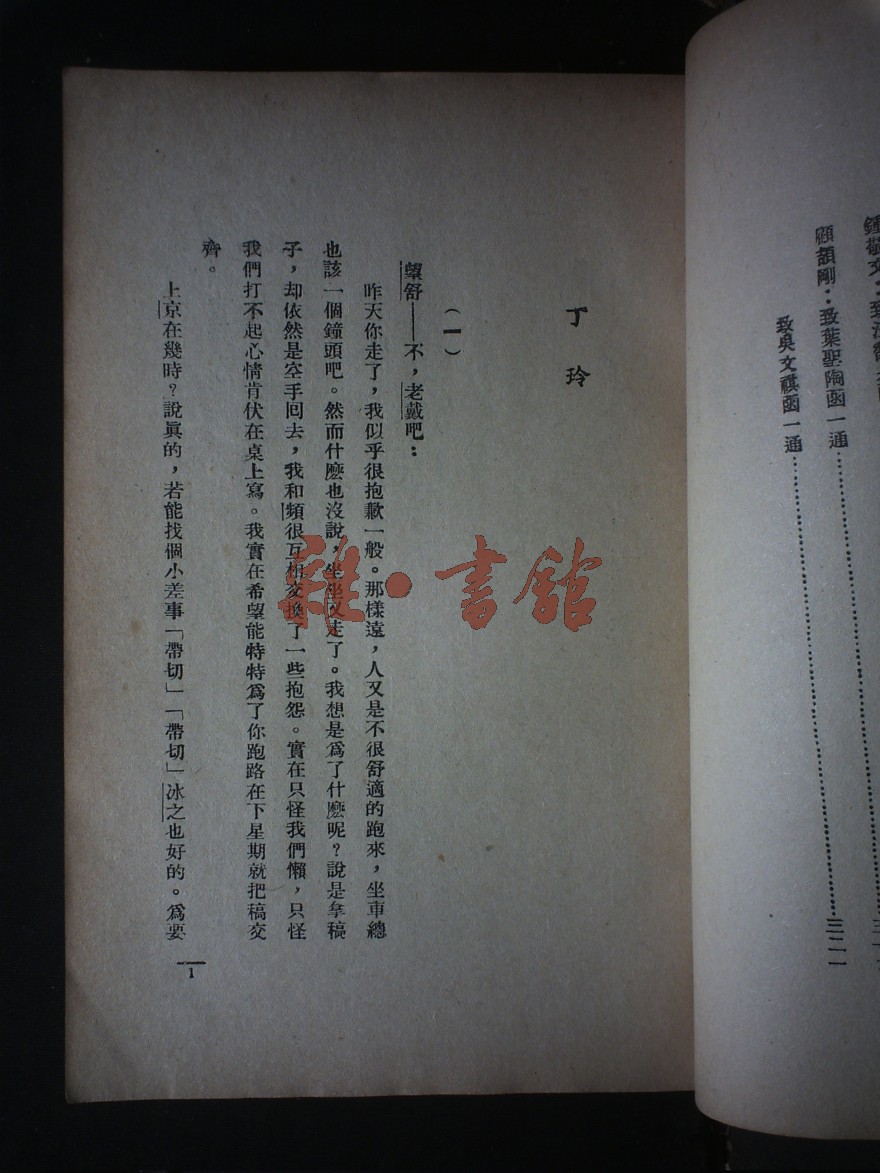 鍾敬文：致汪馥泉
顧頡剛：致葉聖陶函一通……三二一
致吳文祺函一通……
丁玲
（一）
望舒——不，老戴吧：
昨天你走了，我似乎很抱歉一般。那樣遠，人又是不很舒適的跑來，坐車總
也該一個鐘頭吧。然而什麽也沒說，坐坐又走了。我想是爲了什麽呢？說是拿稿
子，却依然是空手回去，我和頻很互相交換了一些抱怨。實在只怪我們懶，只怪
我們打不起心情肯伏在桌上寫。我實在希望能特特爲了你跑路在下星期就把稿交
齊。
上京在幾時？說眞的，若能找個小差事「帶切」「帶切」冰之也好的。爲要
1
雜·書館